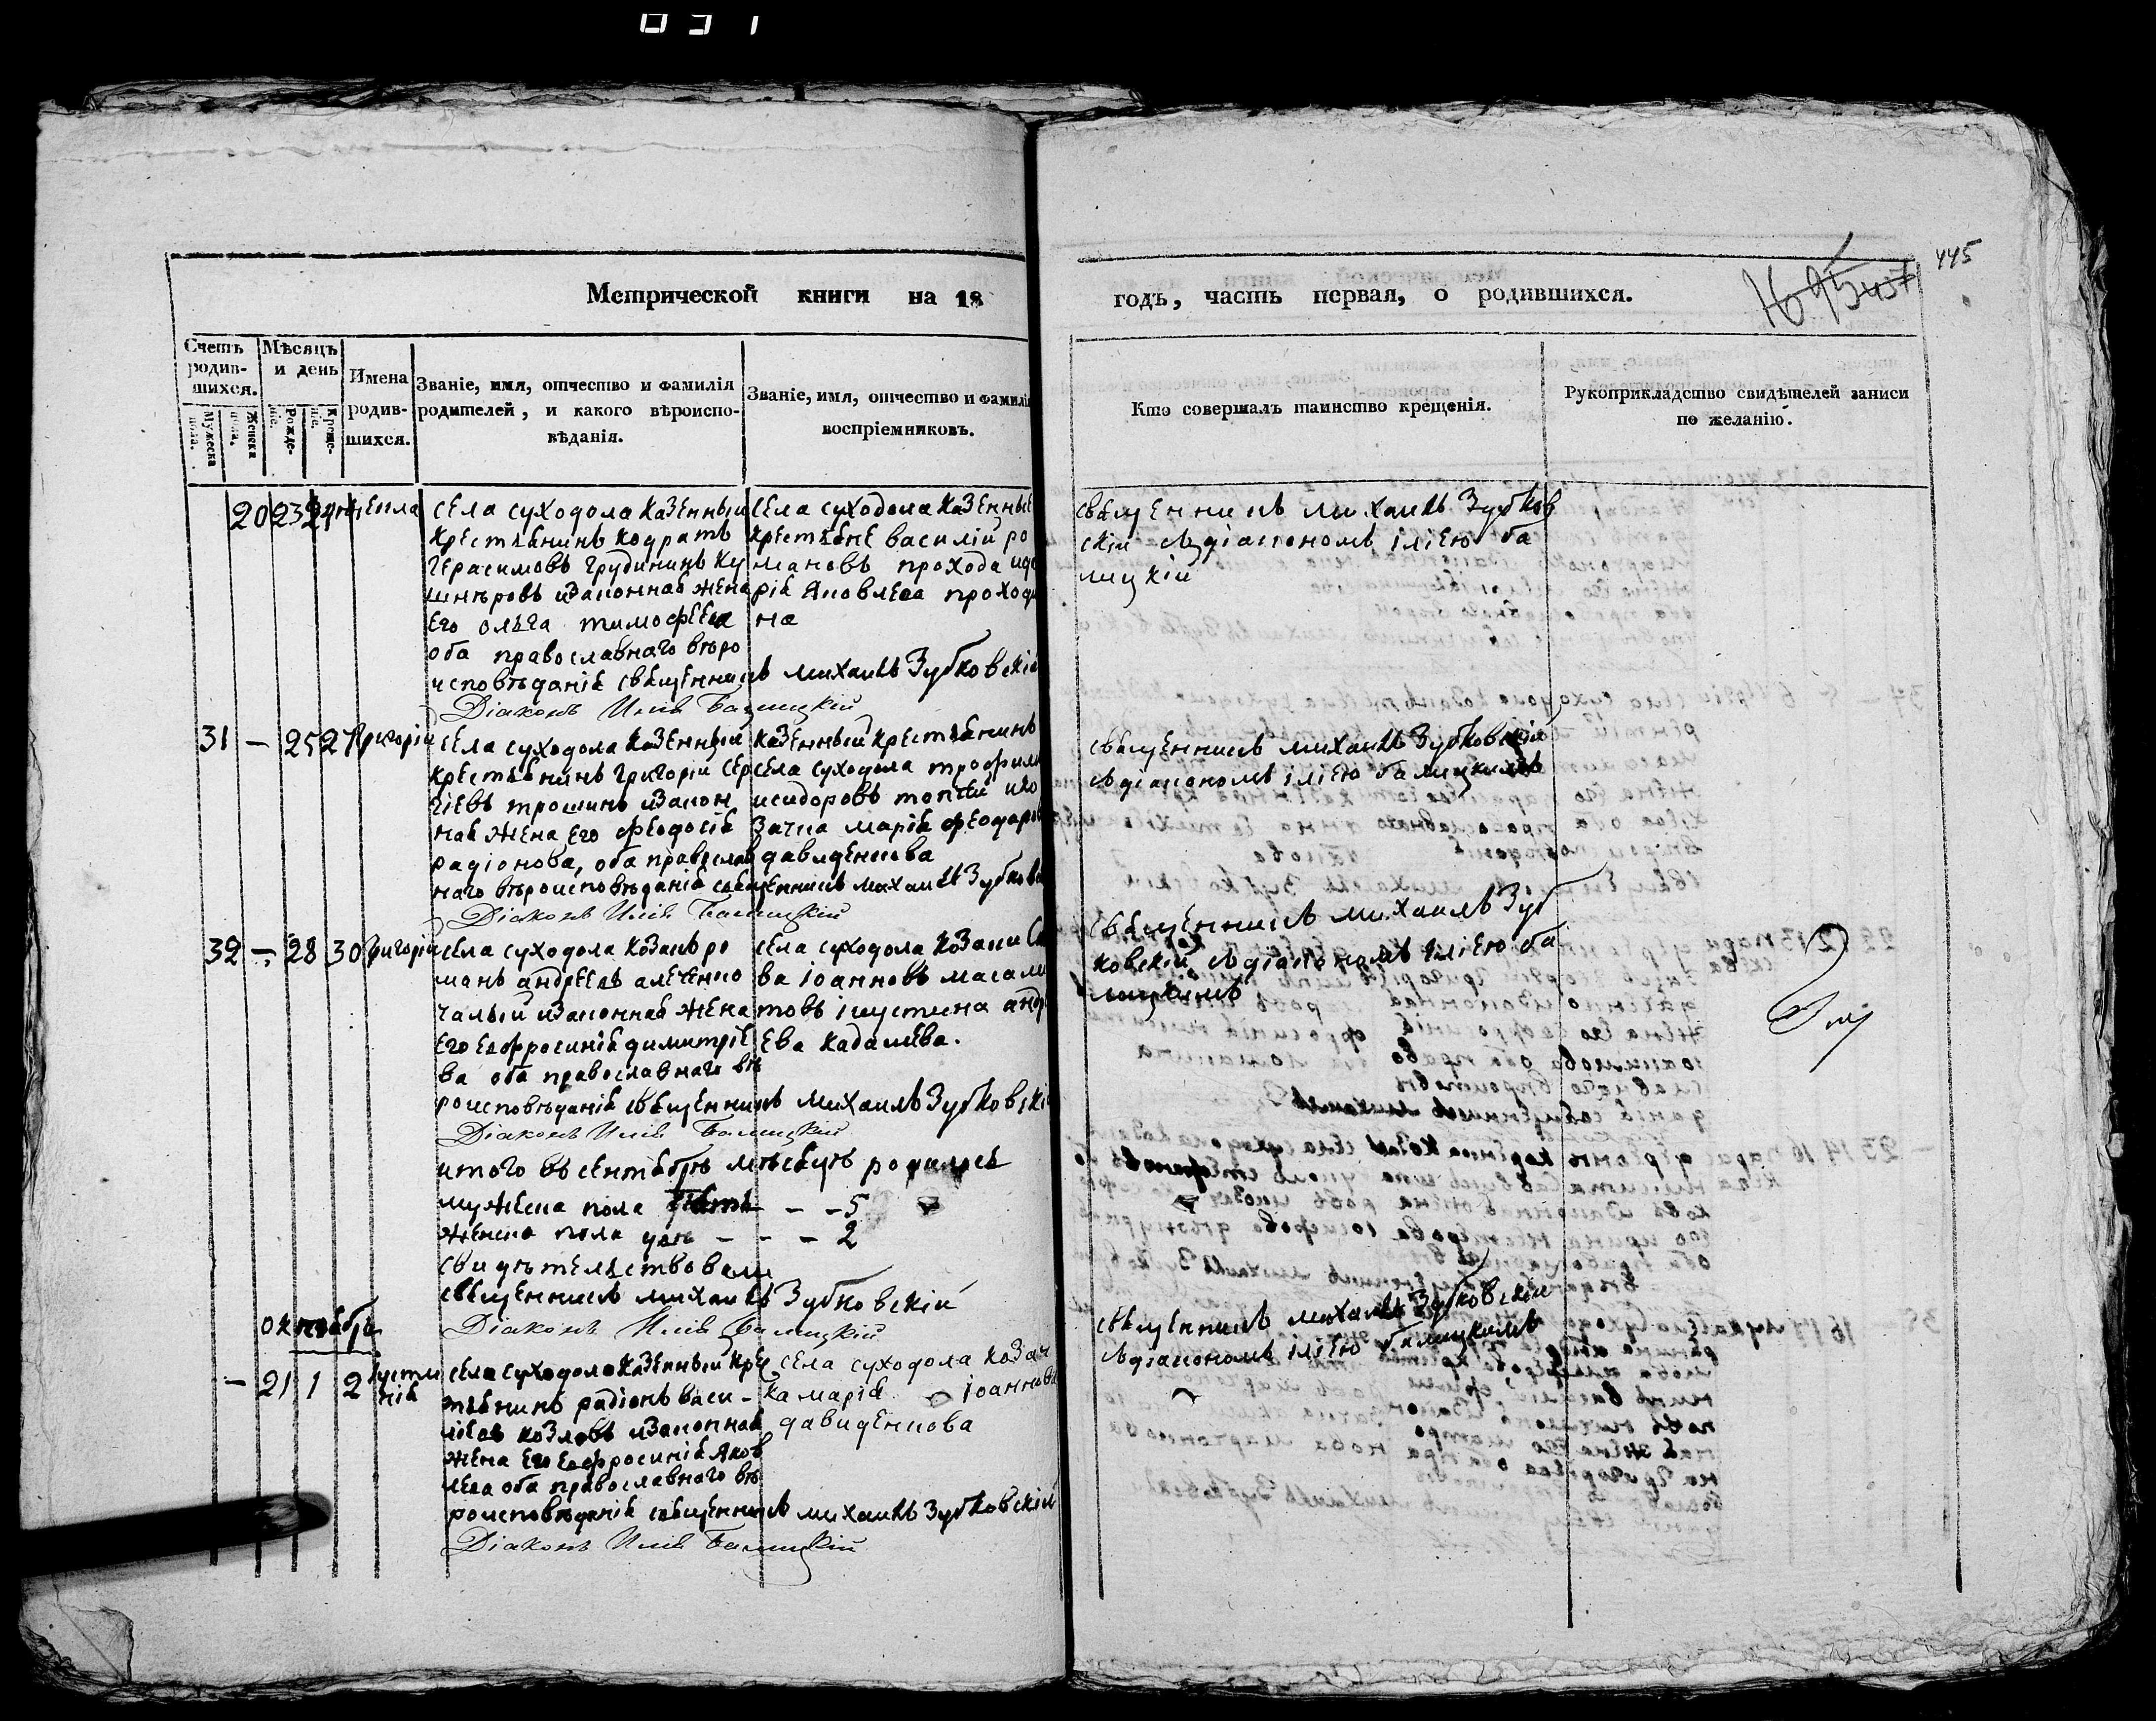 031
445
Метрической книги на 18
годъ, часть первая, о родившихся.
Счетъ родившихся.
Мужеска пола.
Женска пола.
Мѣсяцъ и день
Рождение.
Крещение.
Имена родившихся.
Званіе, имя, отчество и фамилія родителей, и какого вѣроисповѣданія.
Званіе, имя, отчество и фамилі
воспріемниковъ.
Кто совершалъ таинство крещенія.
Рукоприкладство свидѣтелей записи по желанію.
20 23
села суходола казенный
крестьянинъ кодратъ
герасимовъ грудининъ ку
шнѣровъ изаконная жена
его ольга тимофеева
оба православнаго вѣро
исповѣданія священникъ михаилъ Зубковскій
Діаконъ Илія Балицкій
села суходола казенные
крестьяне василій ро
мановъ прохода
рія яковлева проход
на
священникъ михаилъ Зубков
скій съ діакономъ іліею ба
лицкій
31 — 25 27 Григорій
села суходола казенный
крестьянинъ григорій сер
гіевъ трошинъ изакон
ная жена его феодосія
радіонова, оба православ
наго вѣроисповѣданія священникъ михаилъ Зубковс
Діаконъ Илія Балицкій
казенный крестьянинъ
села суходола трофим
исидоровъ топчій ико
зачка марія феодоров
давиденкова
священникъ михаилъ Зубковскій
съ діакономъ іліею балицкимъ
32 — 28 30 Григорій
села суходола козакъ ро
манъ андреевъ
чалый изаконная жена
его евфросинія димитріе
ва оба православнаго вѣ
роисповѣданія священникъ михаилъ Зубковскі
Діаконъ Илія Балицкій
села суходола козаки Са
ва іоанновъ масали
товъ іиустина андр
ева кадалева.
священникъ михаилъ Зуб
ковскій съ діакономъ іліею ба
лицкимъ
итого въ сентябрѣ мѣсяцѣ родился
мужеска пола пять — — 5
женска пола двѣ — — — 2
свидѣтельствовали
священникъ михаилъ Зубковскій
Діаконъ Илія Балицкій
октябрь
— 21 1 2 Иусти
нія
села суходола казенный кре
стьянинъ радіонъ васи-
ліевъ козловъ изаконная
жена его евфросинія яков
лева оба православнаго вѣ
роисповѣданія священникъ михаилъ Зубковскій
Діаконъ Илія Балицкій
села суходола козач
ка марія іоаннова
давиденкова
священникъ михаилъ Зубковскій
съ діакономъ іліею балицкимъ